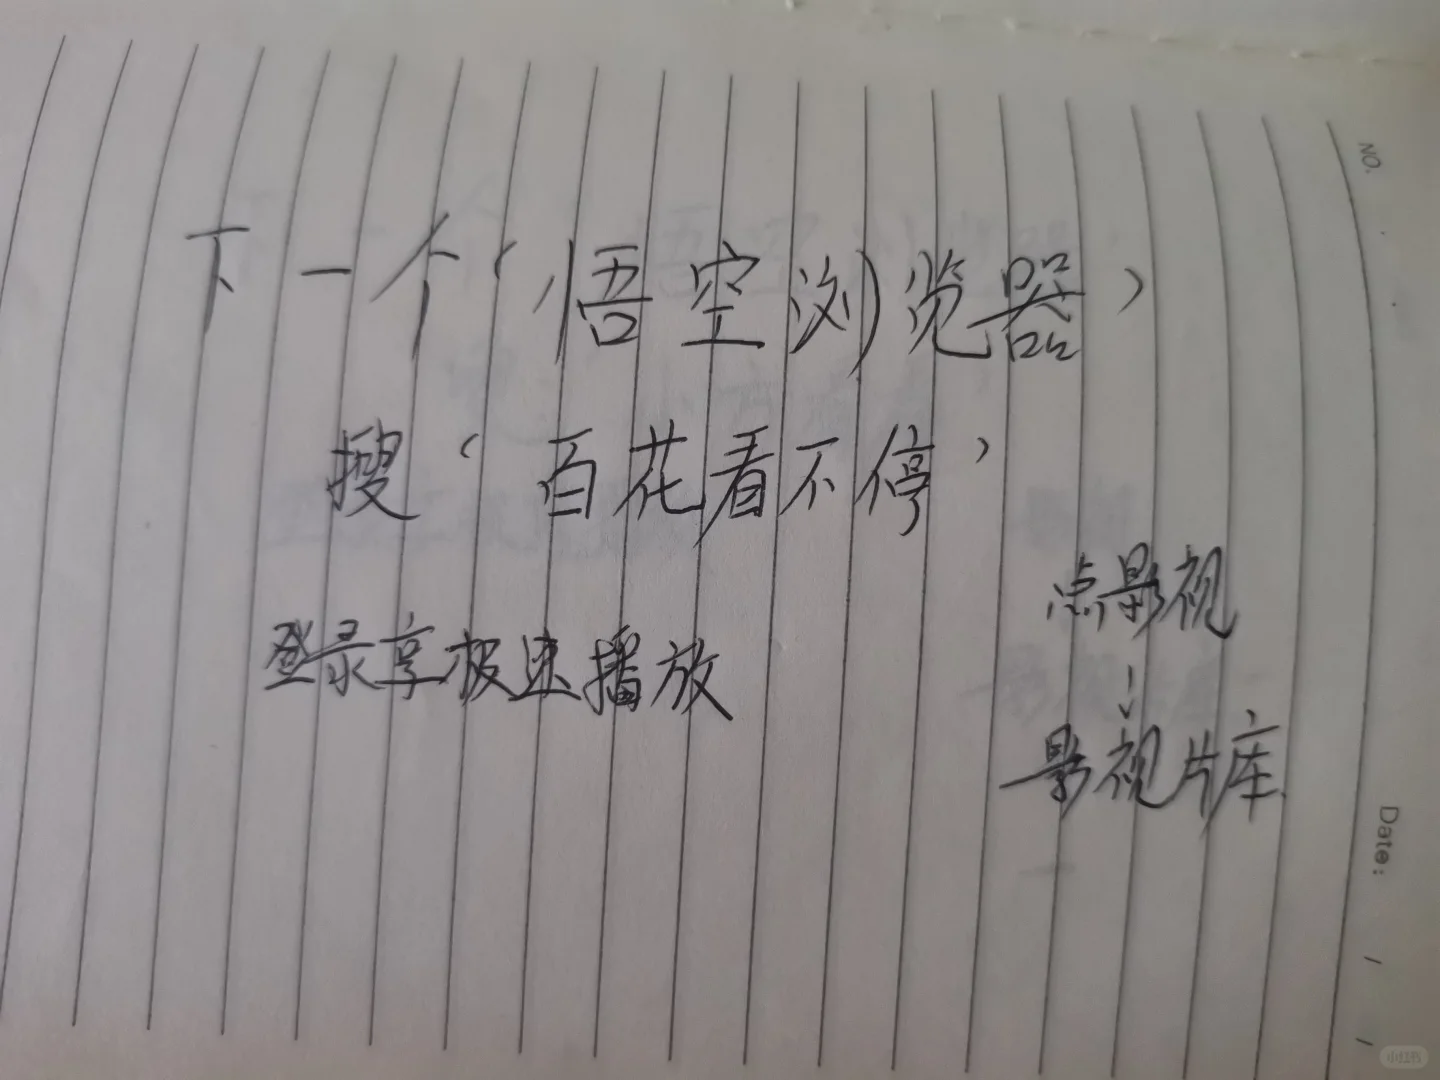 NO.
下一个‘悟空浏览器’
搜‘百花看不停’
点影视
登录享极速播放
影视片库
Date:
小红书